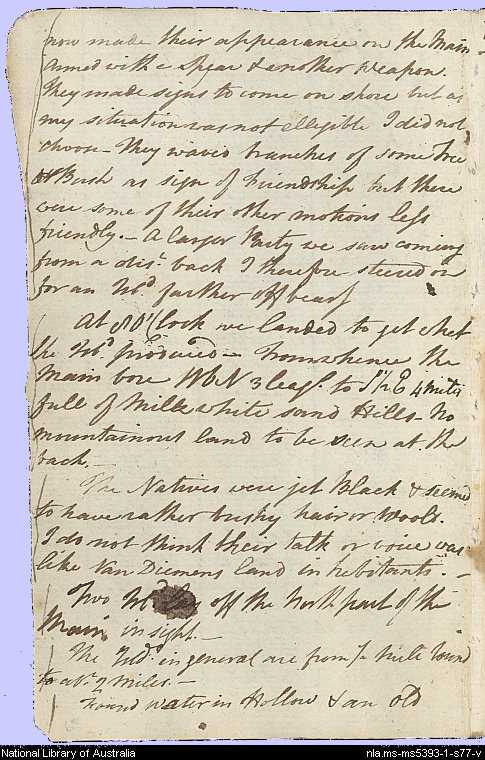 now made their appearance on the Main
armed with a spear & another Weapon.
They made signs to come on shore but as
my situation was not ellegible I did not
choose - They waved branches of some Tree
or Bush as sign of Friendship but there
were some of their other motions less
friendly. - A larger Party we saw coming
from a dis.t back I therefore steered on
for an Isld farther off
At 8 O'Clock we landed to get what
the Isld produced - From whence the
Main bore WbN 3 leags. to 4 miles
full of Milk white sand Hills - No
mountainous land to be seen at the
back. -
The Natives were jet Black & seemed
to have rather bushy hair or Wool.
I do not think their talk or voice was
like Van Diemens land inhebitants. -
Two off the North part of the
Main in sight. -
The Islds in general are from mile round
to abt. 2 miles. -
Found water in Hollow & an old
National Library of Australia
nla.ms-ms5393-1-s77-v